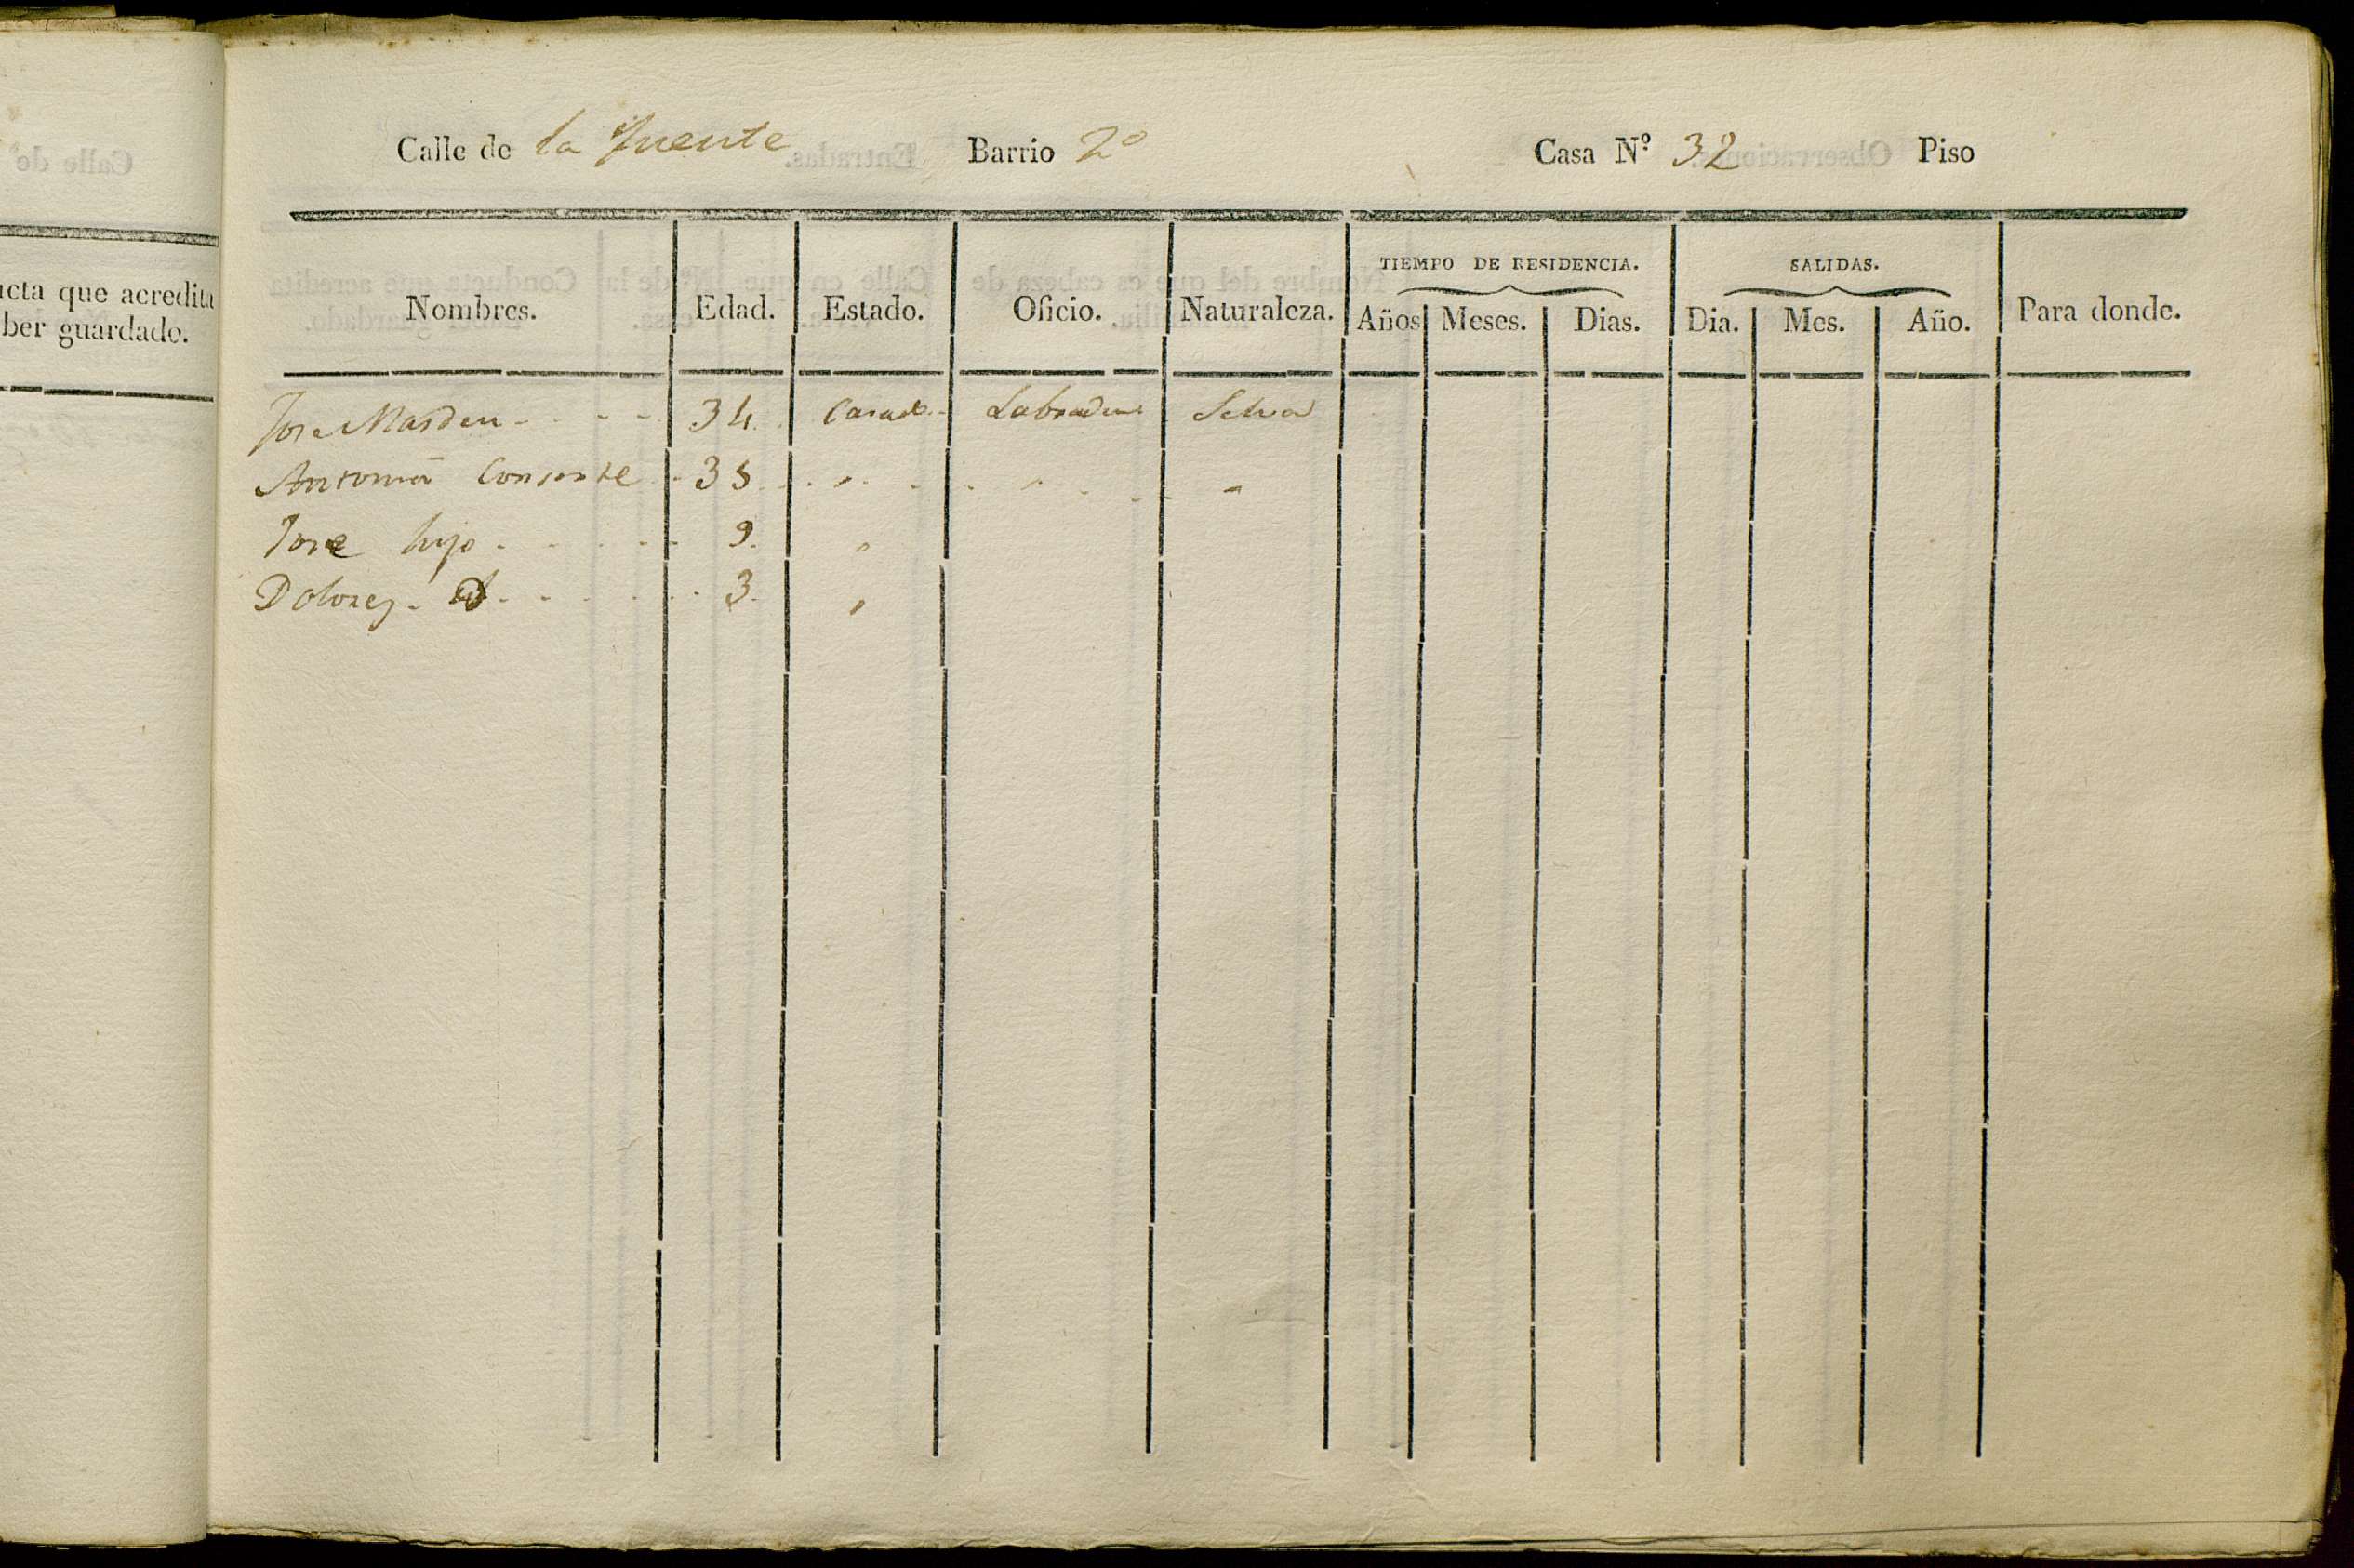 Calle de la fuente Barrio 2º Casa Nº 32 Piso
TIEMPO DE RESIDENCIA. SALIDAS.
Nombres. Edad. Estado. Oficio. Naturaleza. Años Meses. Dias. Dia. Mes. Año. Para donde.
Jose Masdeu - - - 34. Casado. Labrador Selva
Antonia Consorte - 35 . . " . . . " . . . "
Jose hijo - - - - - 9. "
Dolores. id - - - - - 3. "
cta que acredita
ber guardado.